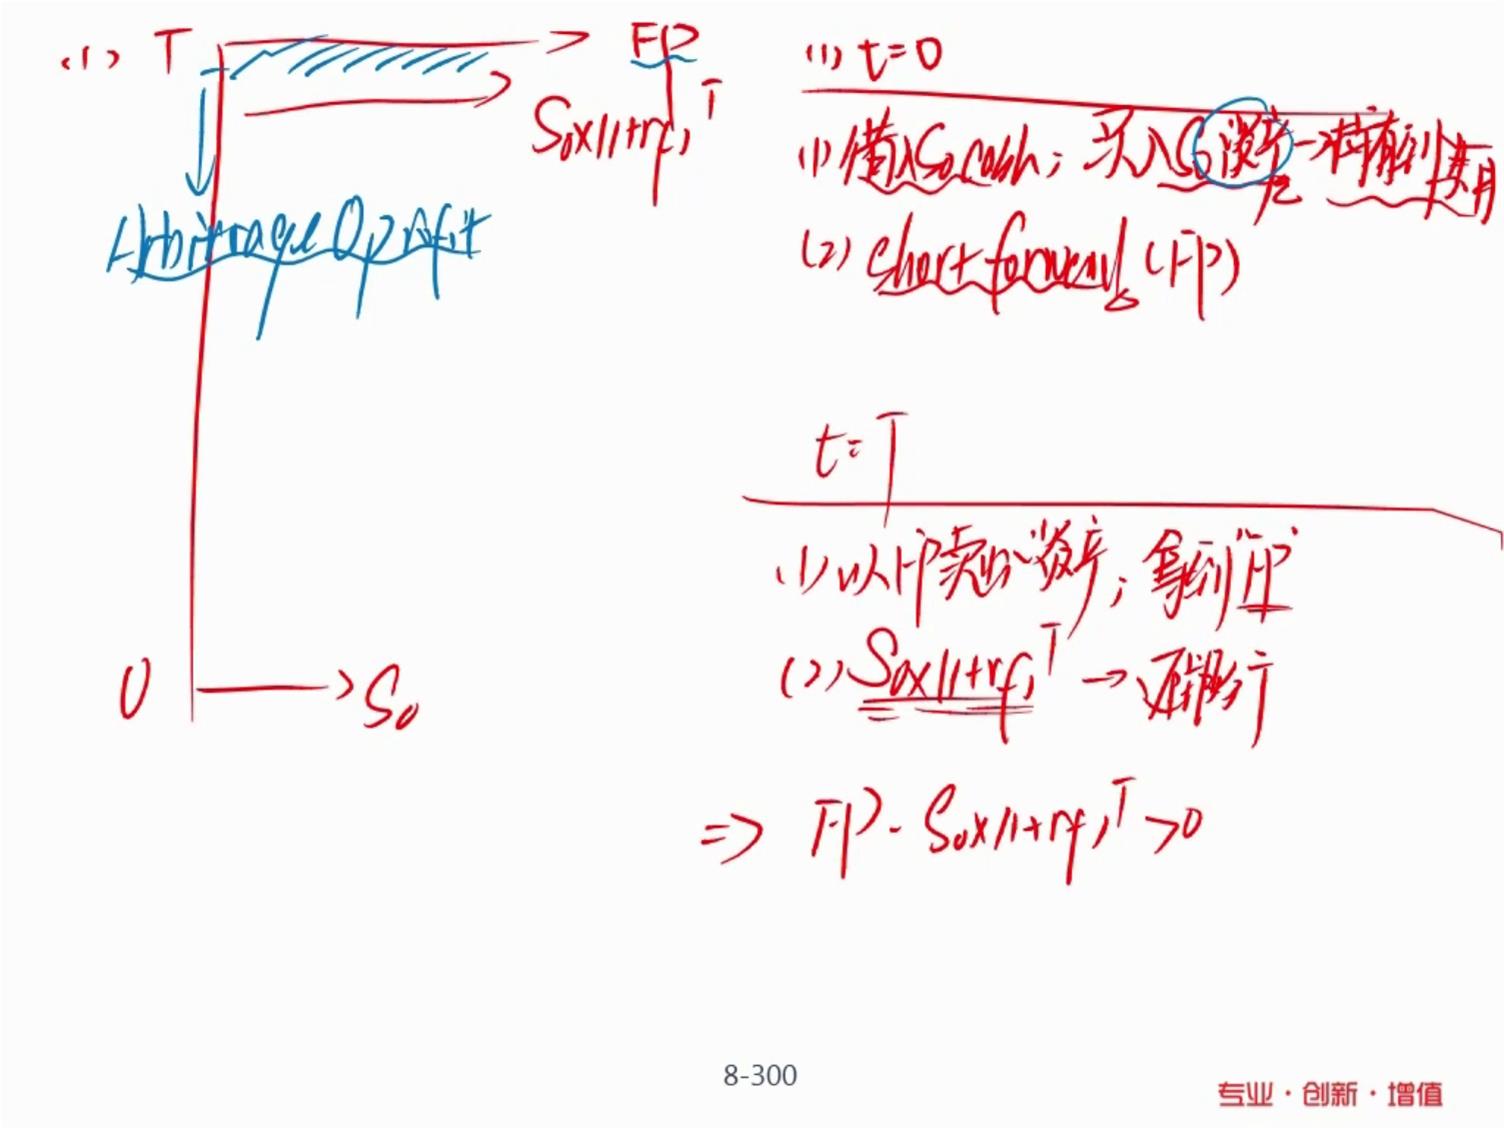 (1) T → FP
S₀×(1+rf)ᵀ
Arbitrage Op profit
0 → S₀
(1) t=0
(1) 借入S₀ cash; 买入S₀资产→持有到期
(2) short forward (FP)
t=T
(1) 以FP卖出资产; 拿到"FP"
(2) S₀×(1+rf)ᵀ → 还银行
⇒ FP - S₀×(1+rf)ᵀ >0
8-300
专业·创新·增值